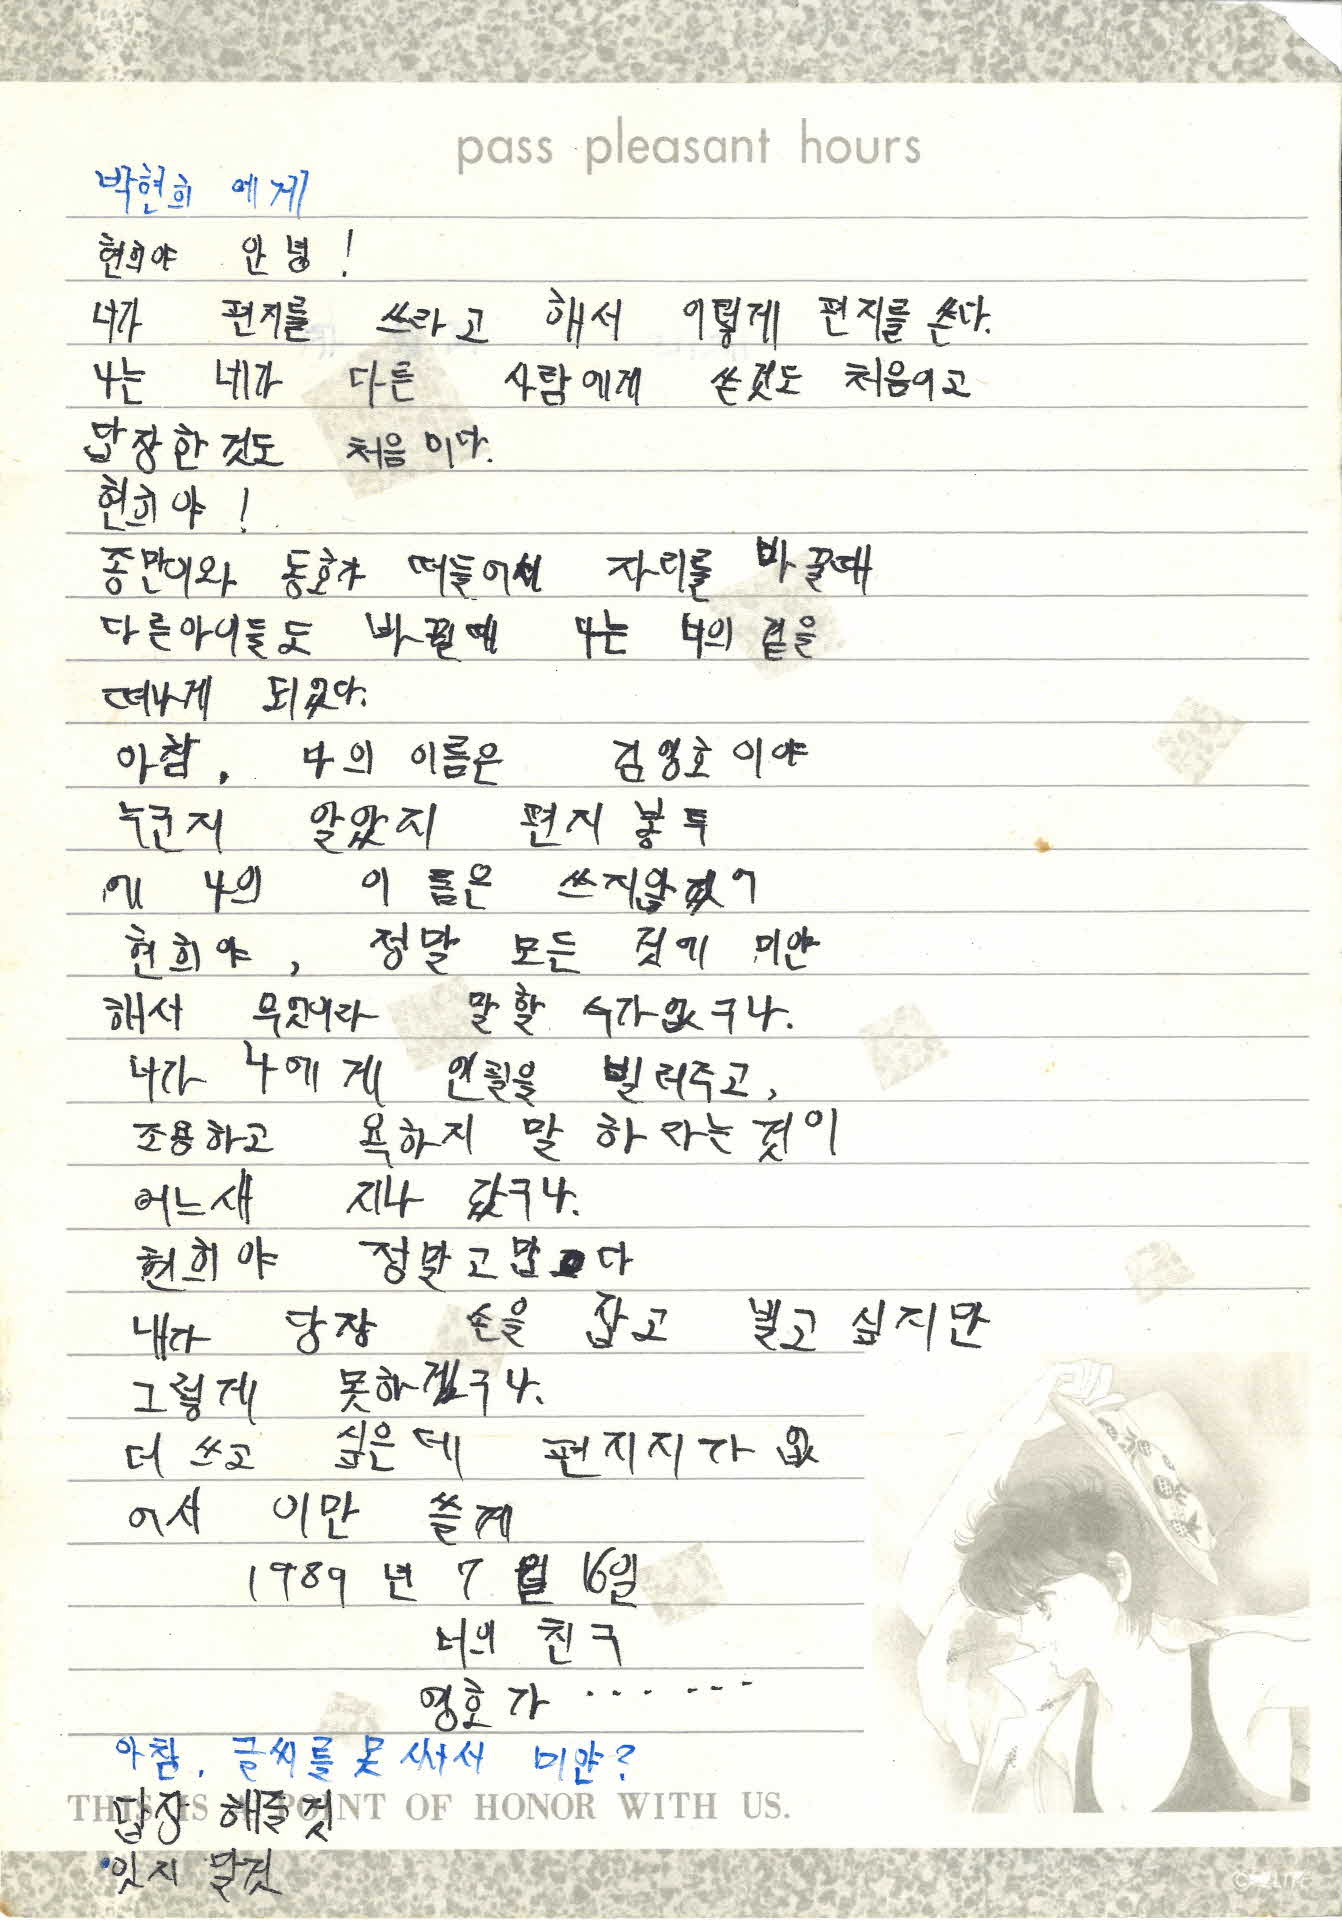 pass pleasant hours
박현희 에게
현희야 안녕!
너가 편지를 쓰라고 해서 이렇게 편지를 쓴다.
나는 네가 다른 사람에게 쓴것도 처음이고
답장한것도 처음이다.
현희야!
종만이와 동호가 떠들어서 자리를 바꿀때
다른아이들도 바뀔때 나는 너의 곁을
떠나게 되었다.
아참, 나의 이름은 김영호이야
누군지 알았지 편지봉투
에 나의 이름은 쓰지않겠어
현희야, 정말 모든 것에 미안
해서 무엇이라 말할 수가없구나.
너가 나에게 연필을 빌려주고,
조용하고 욕하지 말하라는것이
어느새 지나 갔구나.
현희야 정말고맙다
내가 당장 손을 잡고 빌고싶지만
그렇게 못하겠구나.
더 쓰고 싶은데 편지지가 없
어서 이만 쓸게
1989년 7월 16일
너의 친구
영호가 ‥‥‥
아참, 글씨를못써서 미안?
THIS IS A POINT OF HONOR WITH US.
답장해줄것
잊지 말것